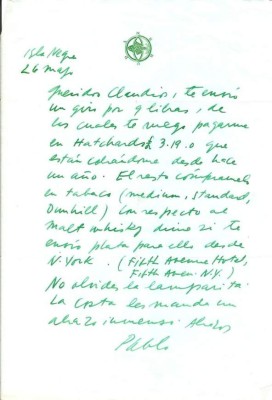 Isla Negra
26 mayo
Queridos Claudios, te envío
un giro por 9 libras, de
las cuales te ruego pagarme
en Hatchards £ 3.19.0 que
están cobrándome desde hace
un año. El resto cómpramelo
en tabaco (medium, Standard,
Dunhill) Con respecto al
Malt whisky dime si te
envío plata para ello desde
N. York. (Fifth Avenue Hotel,
Fifth Aven. N.Y.)
No olvides la lamparita.
La costa les manda un
abrazo inmenso. Abrazos
Pablo